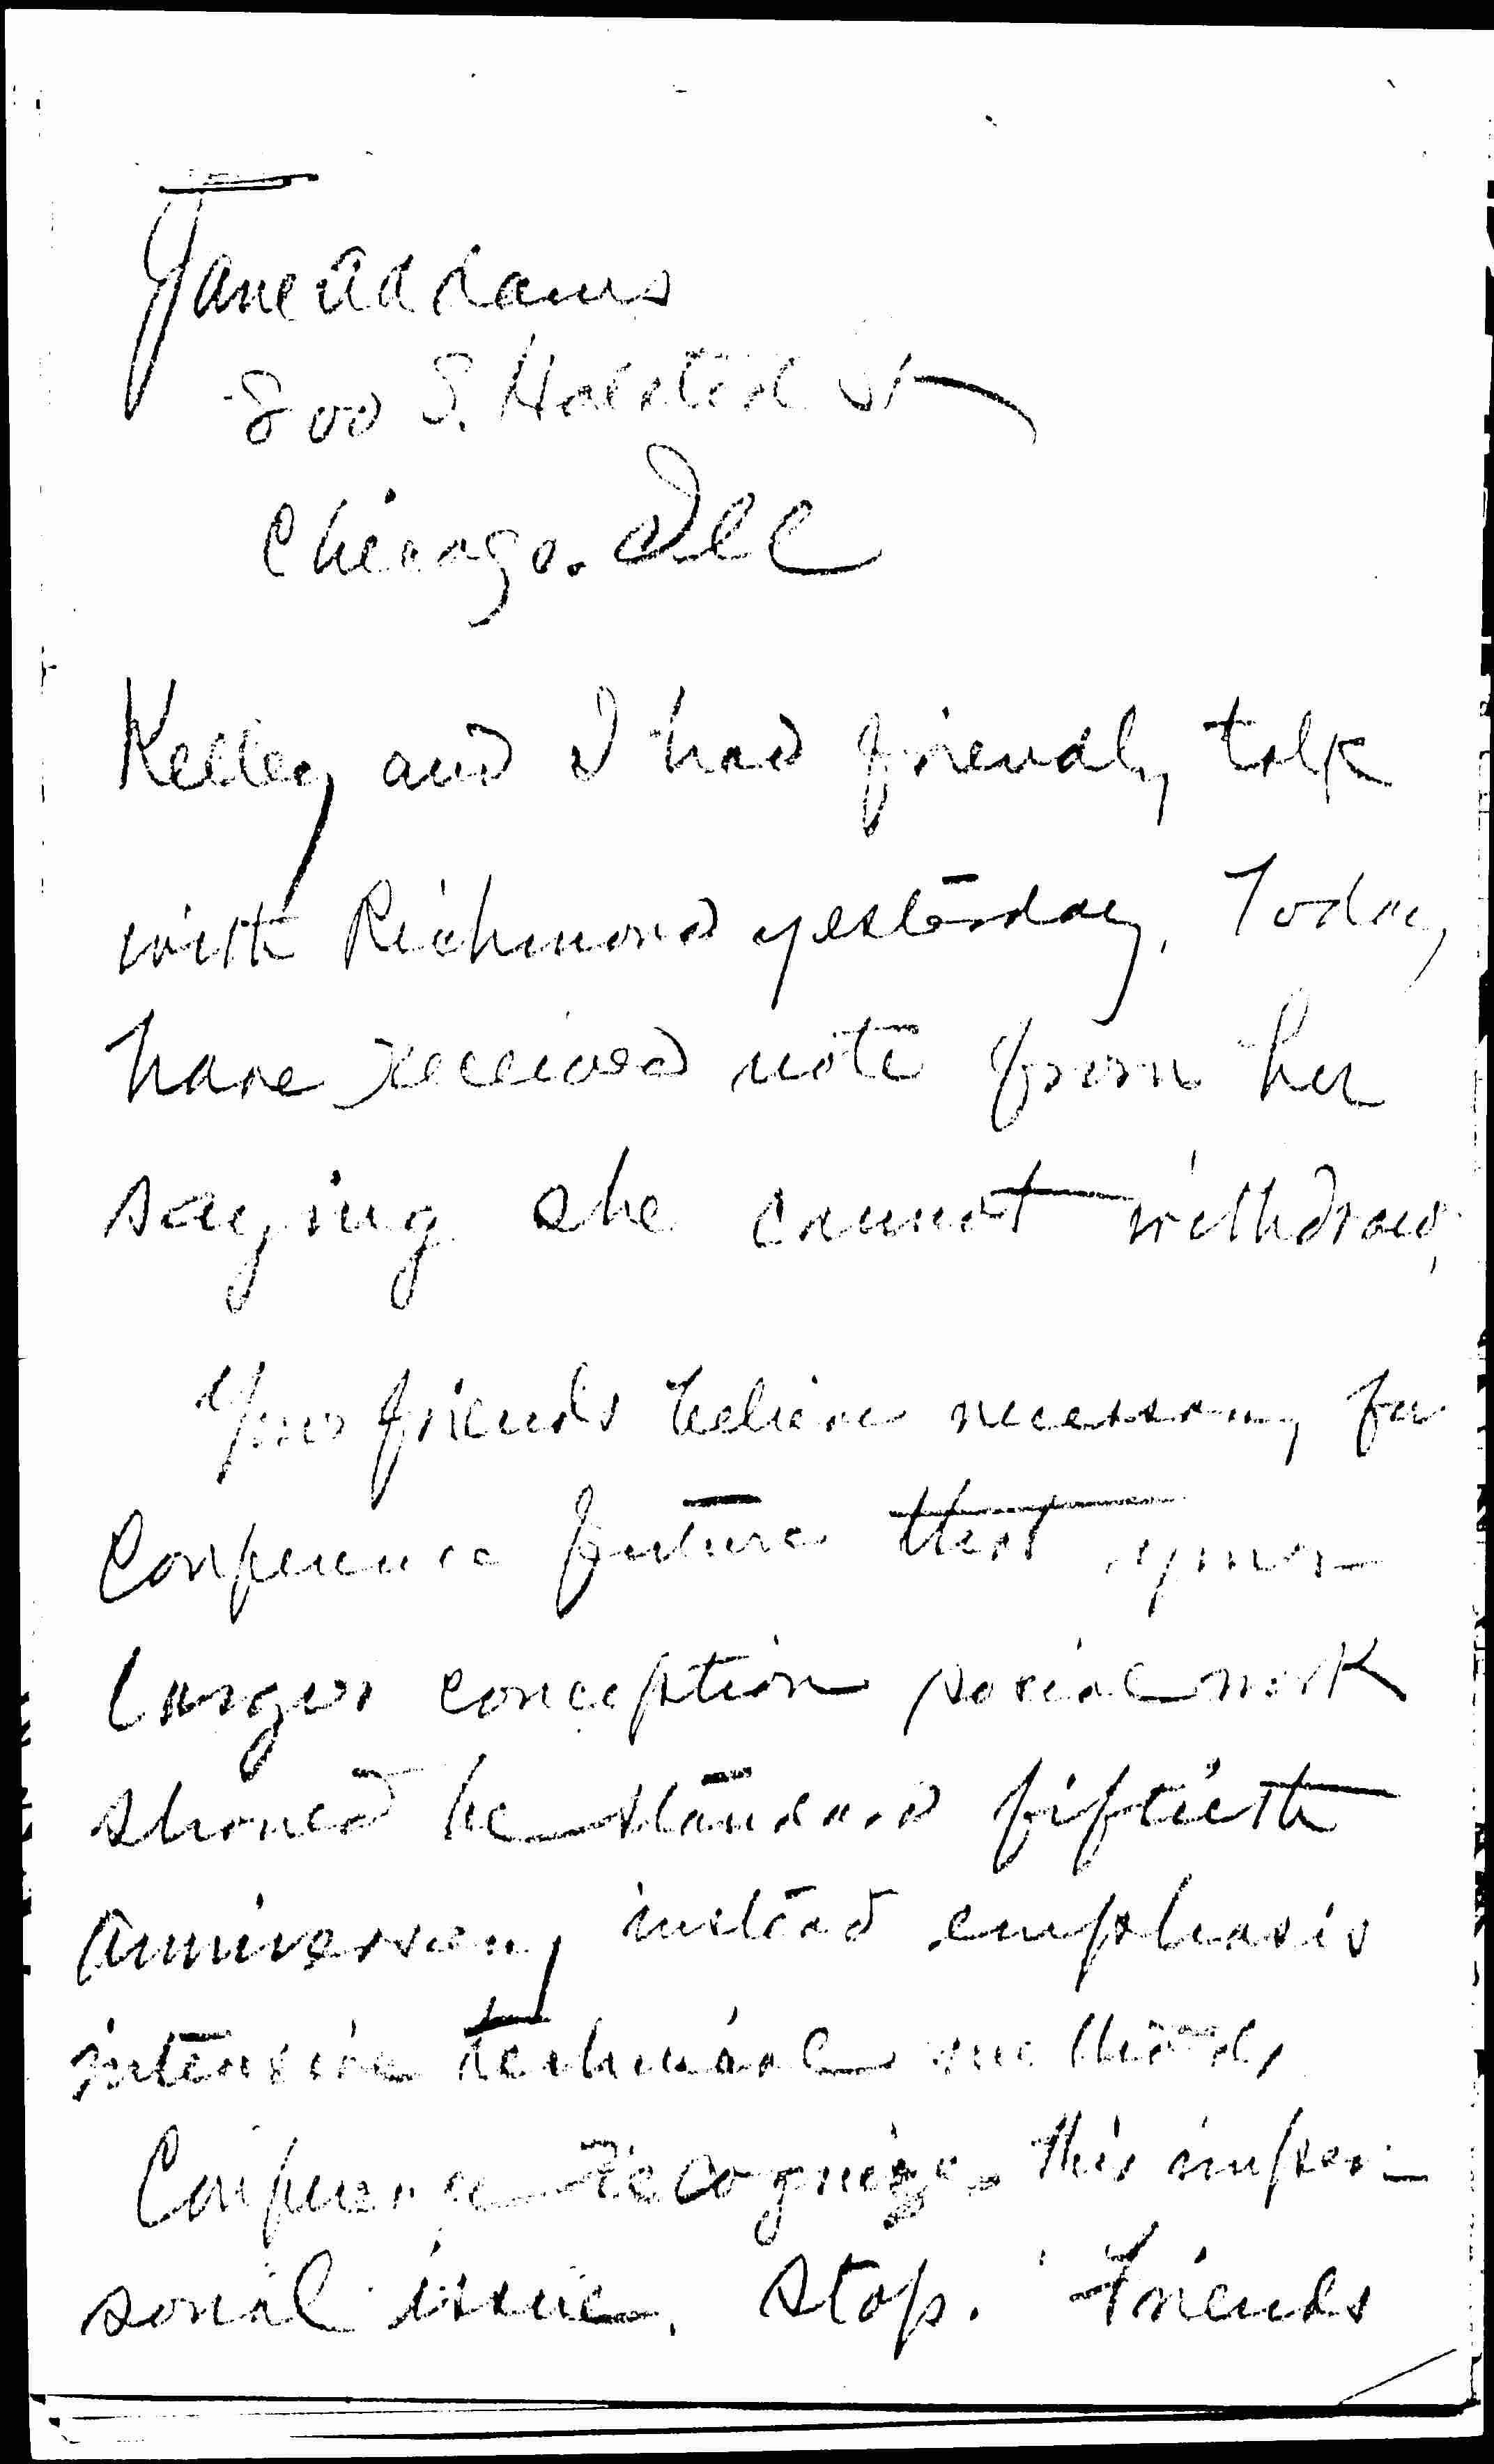 Jane Addams
800 S. Halsted St
Chicago. Ill
Kelley and I had friendly talk
with Richmond yesterday. Today
have received note from her
saying she cannot withdraw.
Your friends believe necessary for
Conference future that your
larger conception social work
should be standard fiftieth
anniversary instead emphasis
intensive technical methods
Conference recognizes this imper-
sonal issue. Stop. Friends